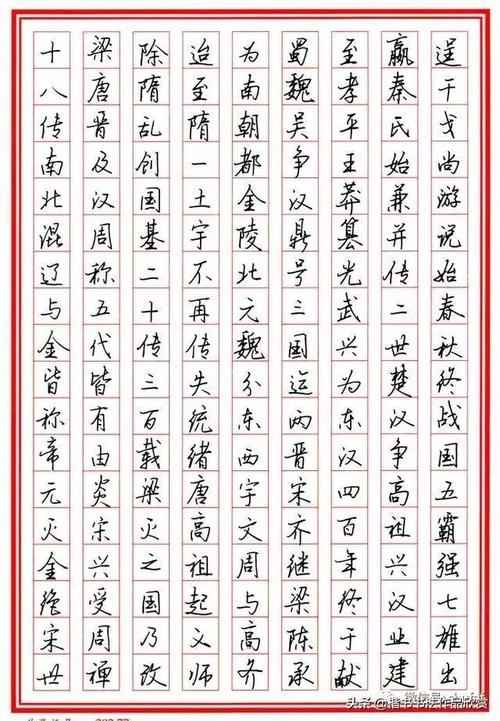 逞干戈尚游说始春秋终战国五霸强七雄出
嬴秦氏始兼并传二世楚汉争高祖兴汉业建
至孝平王莽篡光武兴为东汉四百年终于献
蜀魏吴争汉鼎号三国迄两晋宋齐继梁陈承
为南朝都金陵北元魏分东西宇文周与高齐
迨至隋一土宇不再传失统绪唐高祖起义师
除隋乱创国基二十传三百载梁灭之国乃改
梁唐晋及汉周称五代皆有由炎宋兴受周禅
十八传南北混辽与金皆称帝元灭金绝宋世
微信号
头条@楷书书法作品欣赏